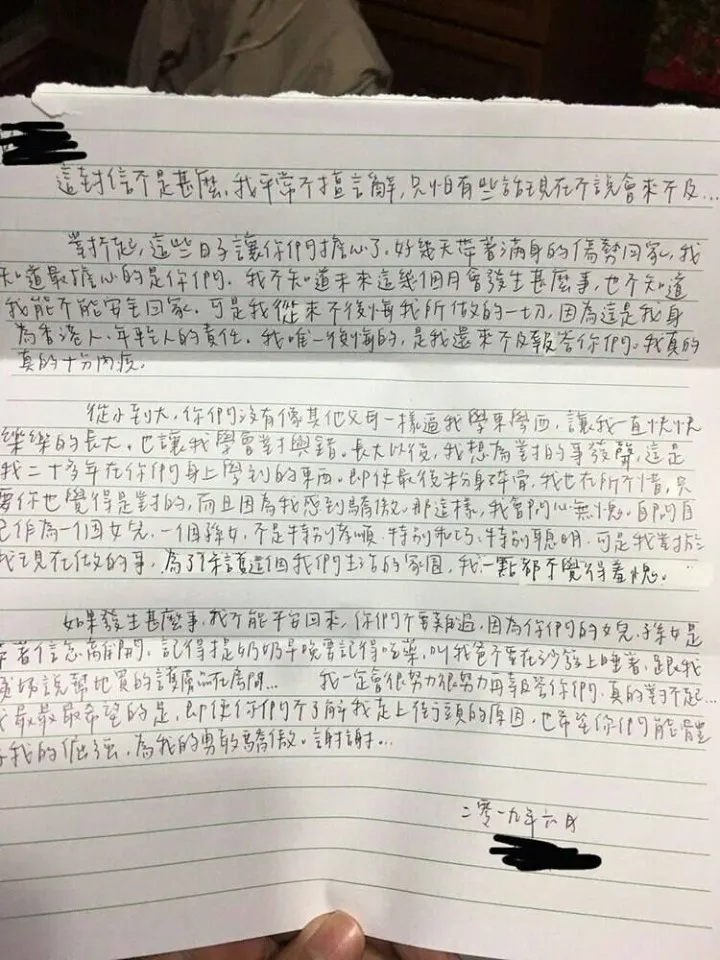 這封信不是甚麼,我平常不擅言辭,只怕有些話現在不說會來不及...
對不起,這些日子讓你們擔心了,好幾天帶著滿身的傷勢回家,我
知道最擔心的是你們。我不知道未來這幾個月會發生甚麼事,也不知道
我能不能安全回家。可是我從來不後悔我所做的一切,因為這是我身
為香港人、年輕人的責任。我唯一後悔的,是我還來不及報答你們。我真的
真的十分內疚。
從小到大,你們沒有像其他父母一樣逼我學東學西,讓我一直快快
樂樂的長大。也讓我學會對與錯。長大以後,我想為對的事發聲,這是
我二十多年在你們身上學到的東西。即使最後粉身碎骨,我也在所不惜,只
要你也覺得是對的,而且因為我感到驕傲。那這樣,我會問心無愧。自問自
己作為一個女兒、一個孫女,不是特別孝順、特別乖巧、特別聰明,可是我對於
我現在做的事,為了保護這個我們生活的家園,我一點都不覺得羞愧。
如果發生甚麼事,我不能平安回來,你們不要難過,因為你們的女兒、孫女是
帶著信念離開,記得提奶奶早晚要記得吃藥,叫我爸不要在沙發上睡著,跟我
媽媽說幫她買的護膚品在房間... 我一定會很努力很努力再報答你們,真的對不起...
我最最最希望的是,即使你們不了解我走上街頭的原因,也希望你們能體
我的倔強,為我的勇敢驕傲。謝謝...
二零一九年六月